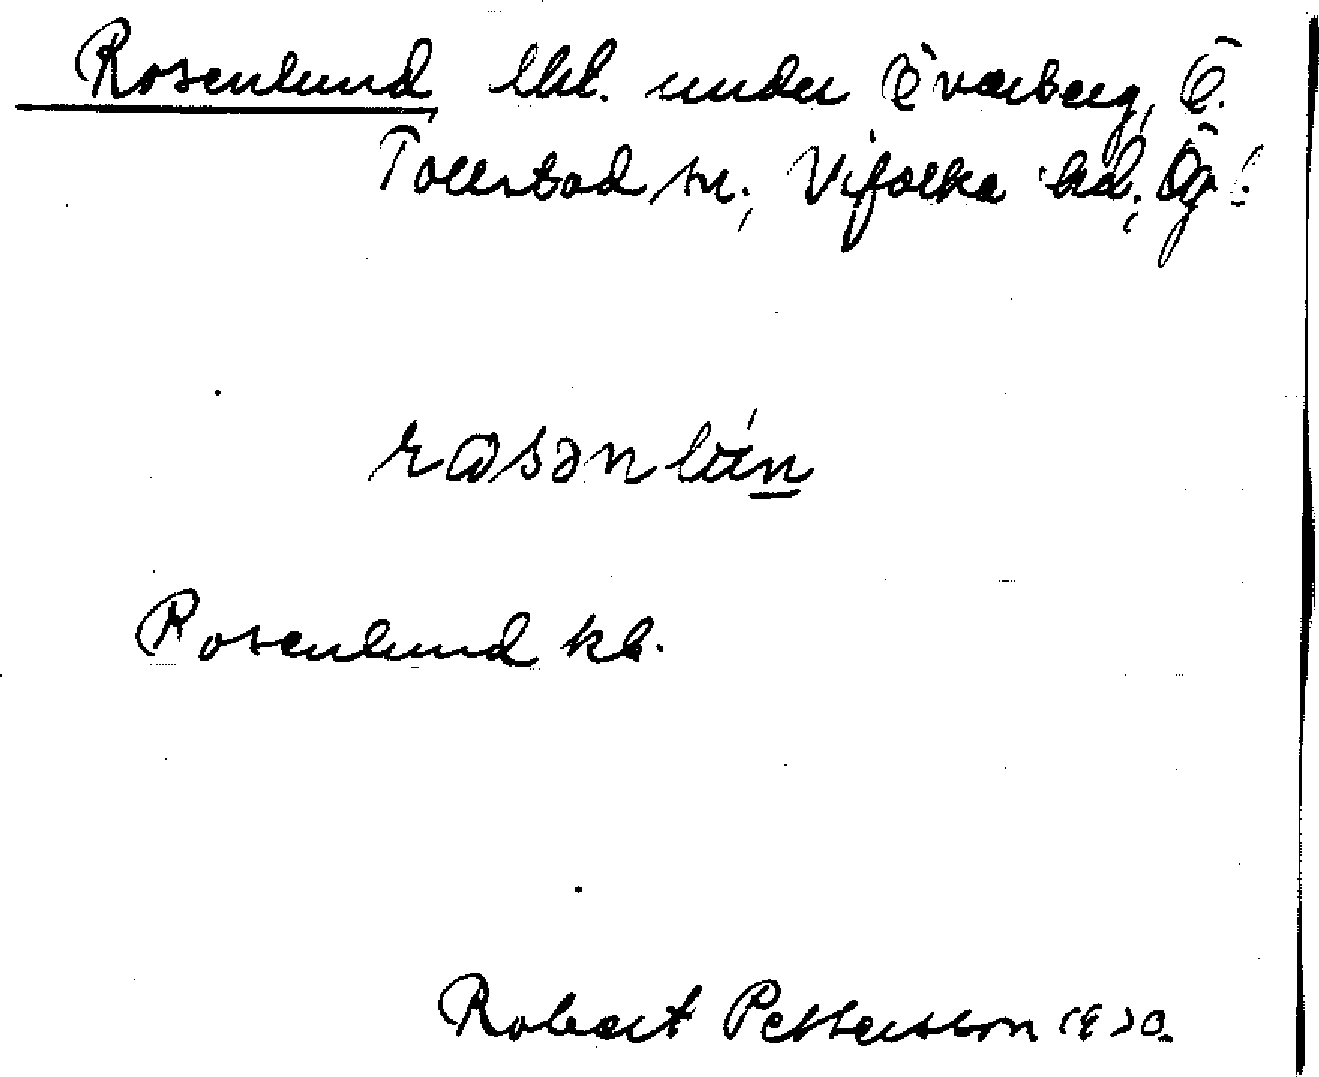 Rosenlund lht. under Övarberg, Ö.
Tollstad sn., Vifolka hd., Ög.
Rosenlund kb.
Robert Pettersson